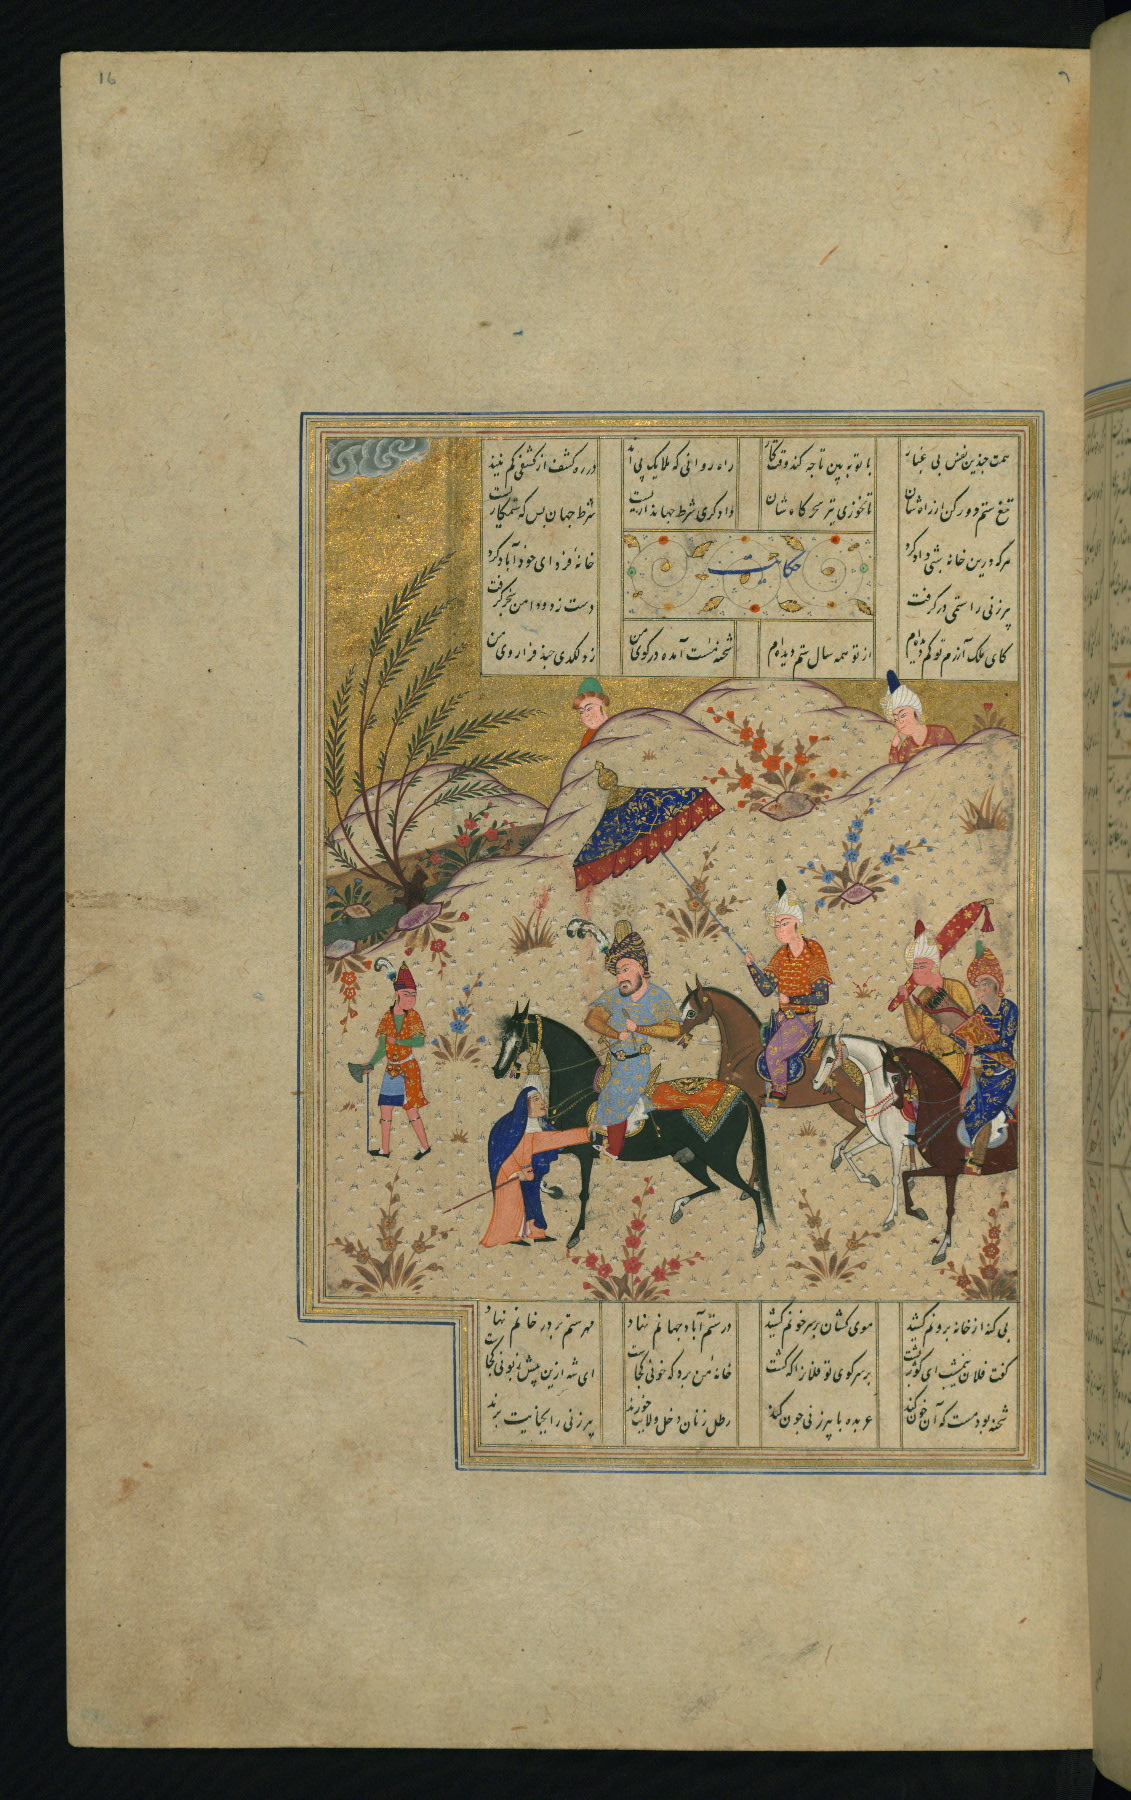 16
همت چندین نفس بی غبار با تو ببین تا چه کند وقت کار راه روانی که ملایک پی اند در ره کشف از کشفی کم نیند
تیغ ستم دور کن از راه شان تا نخوری تیر سحرگاه شان دادگری شرط جهانداریست شرط جهان بس که ستمکاریست
هرکه درین خانه شبی داد کرد خانهٔ فردای خود آباد کرد
حکایت
پیرزنی را ستمی درگرفت دست زد و دامن سنجر گرفت
کای ملک آزرم تو کم دیده‌ام از تو همه سال ستم دیده‌ام شحنهٔ مست آمده در کوی من زد لکدی چند فرا روی من
بی گنه از خانه برونم کشید موی کشان بر سر خونم کشید در ستم آباد جهانم نهاد مهر ستم بر در خانم نهاد
گفت فلان نیمشب ای کوژپشت بر سر کوی تو فلانرا که کشت خانهٔ من برد که خونی کجاست ای شه ازین بیش زبونی کجاست
شحنه بود مست که آن خون کند عربده با پیرزنی چون کند رطل زنان دخل ولایت خورند پیرزنی را بجنایت برند